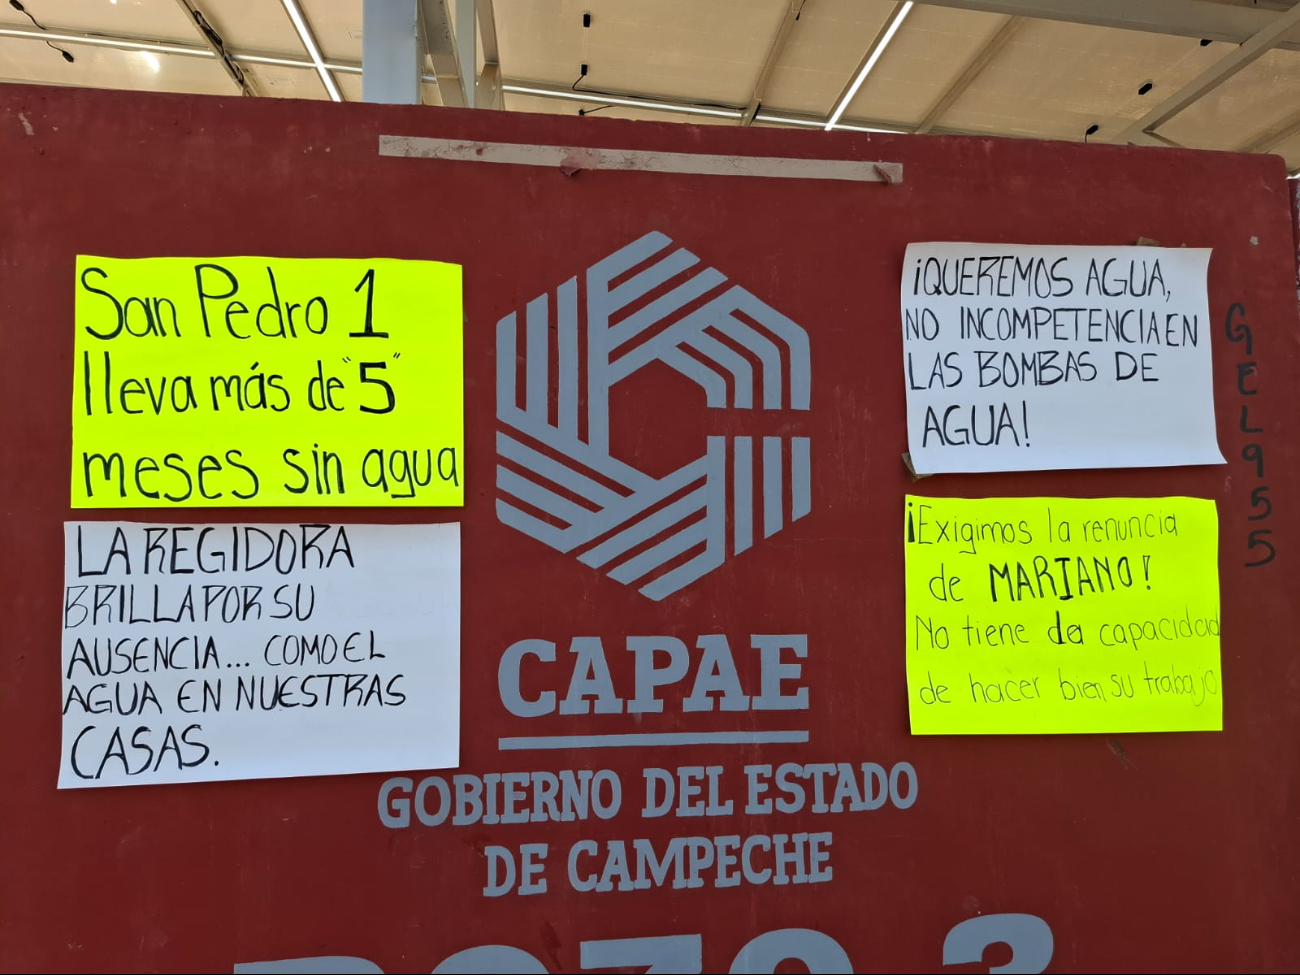 San Pedro 1
lleva más de "5"
meses sin agua
LA REGIDORA
BRILLA POR SU
AUSENCIA... COMO EL
AGUA EN NUESTRAS
CASAS.
CAPAE
GOBIERNO DEL ESTADO
DE CAMPECHE
POZO 3
¡QUEREMOS AGUA,
NO INCOMPETENCIA EN
LAS BOMBAS DE
AGUA!
¡Exigimos la renuncia
de MARIANO!
No tiene da capacidad
de hacer bien su trabajo
GEL955